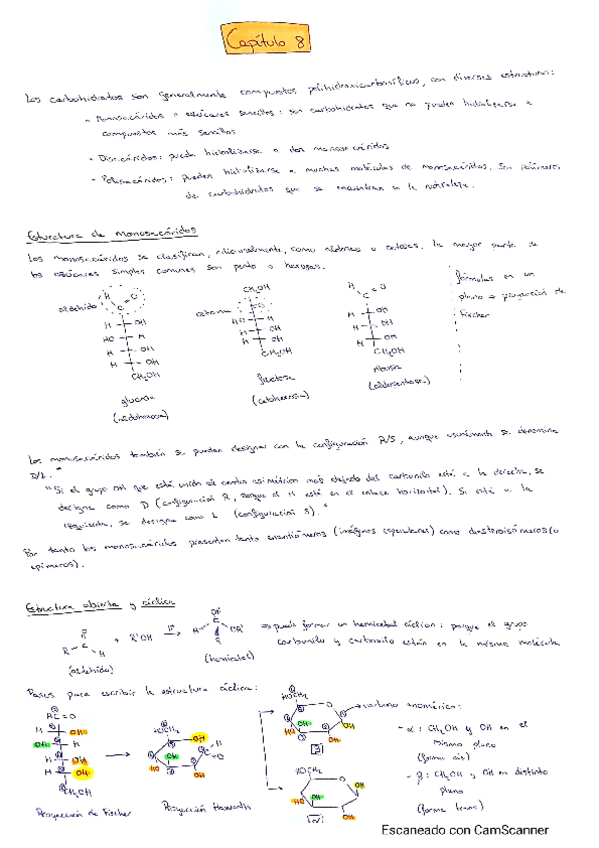 Capítulo 8
Los carbohidratos son generalmente compuestos polihidroxicarbonílicos, con diversas estructuras:
- Monosacáridos o azúcares sencillos: son carbohidratos que no pueden hidrolizarse a
compuestos más sencillos
- Disacáridos: pueden hidrolizarse a dos monosacáridos
- Polisacáridos: pueden hidrolizarse a muchas moléculas de monosacáridos. Son polímeros
de carbohidratos que se encuentran en la naturaleza.
Estructura de monosacáridos
Los monosacáridos se clasifican, como aldosas o cetosas. La mayor parte de
los azúcares simples comunes son pento o hexosas.
aldehído
H
C
O
H OH
HO H
H OH
H OH
CH₂OH
glucosa
(aldohexosa)
cetona
CH₂OH
O
HO H
H OH
H OH
CH₂OH
fructosa
(cetohexosa)
H
C
O
H OH
H OH
H OH
CH₂OH
ribosa
(aldopentosa)
fórmulas en un
plano → proyección de
Fischer
Los monosacáridos también se pueden designar con la configuración R/S, aunque usualmente se denomina
D/L.
"Si el grupo OH que está unido al centro asimétrico más alejado del carbonilo está a la derecha, se
designa como D (configuración R, porque el H está en el enlace horizontal). Si está a la
izquierda, se designa como L (configuración S)."
Por tanto los monosacáridos presentan tanto enantiómeros (imágenes especulares) como diastereoisómeros (o
epímeros).
Estructura abierta y cíclica
R C H + R'OH → H C OR' ⇒ puede formar un hemiacetal cíclico: porque el grupo
carbonilo y están en la misma molécula
(aldehído)
(hemiacetal)
Pasos para escribir la estructura cíclica:
HC=O
H OH
OH H
H OH
H OH
CH₂OH
Proyección de Fischer
HOCH₂
OH
OH
HO
OH
Proyección Haworth
HOCH₂
O
OH
HO
OH
β
HOCH₂
O
OH
HO
OH
α
carbono anomérico:
- α: CH₂OH y OH en el
mismo plano
(forma cis)
- β: CH₂OH y OH en distinto
plano
(forma trans)
Escaneado con CamScanner